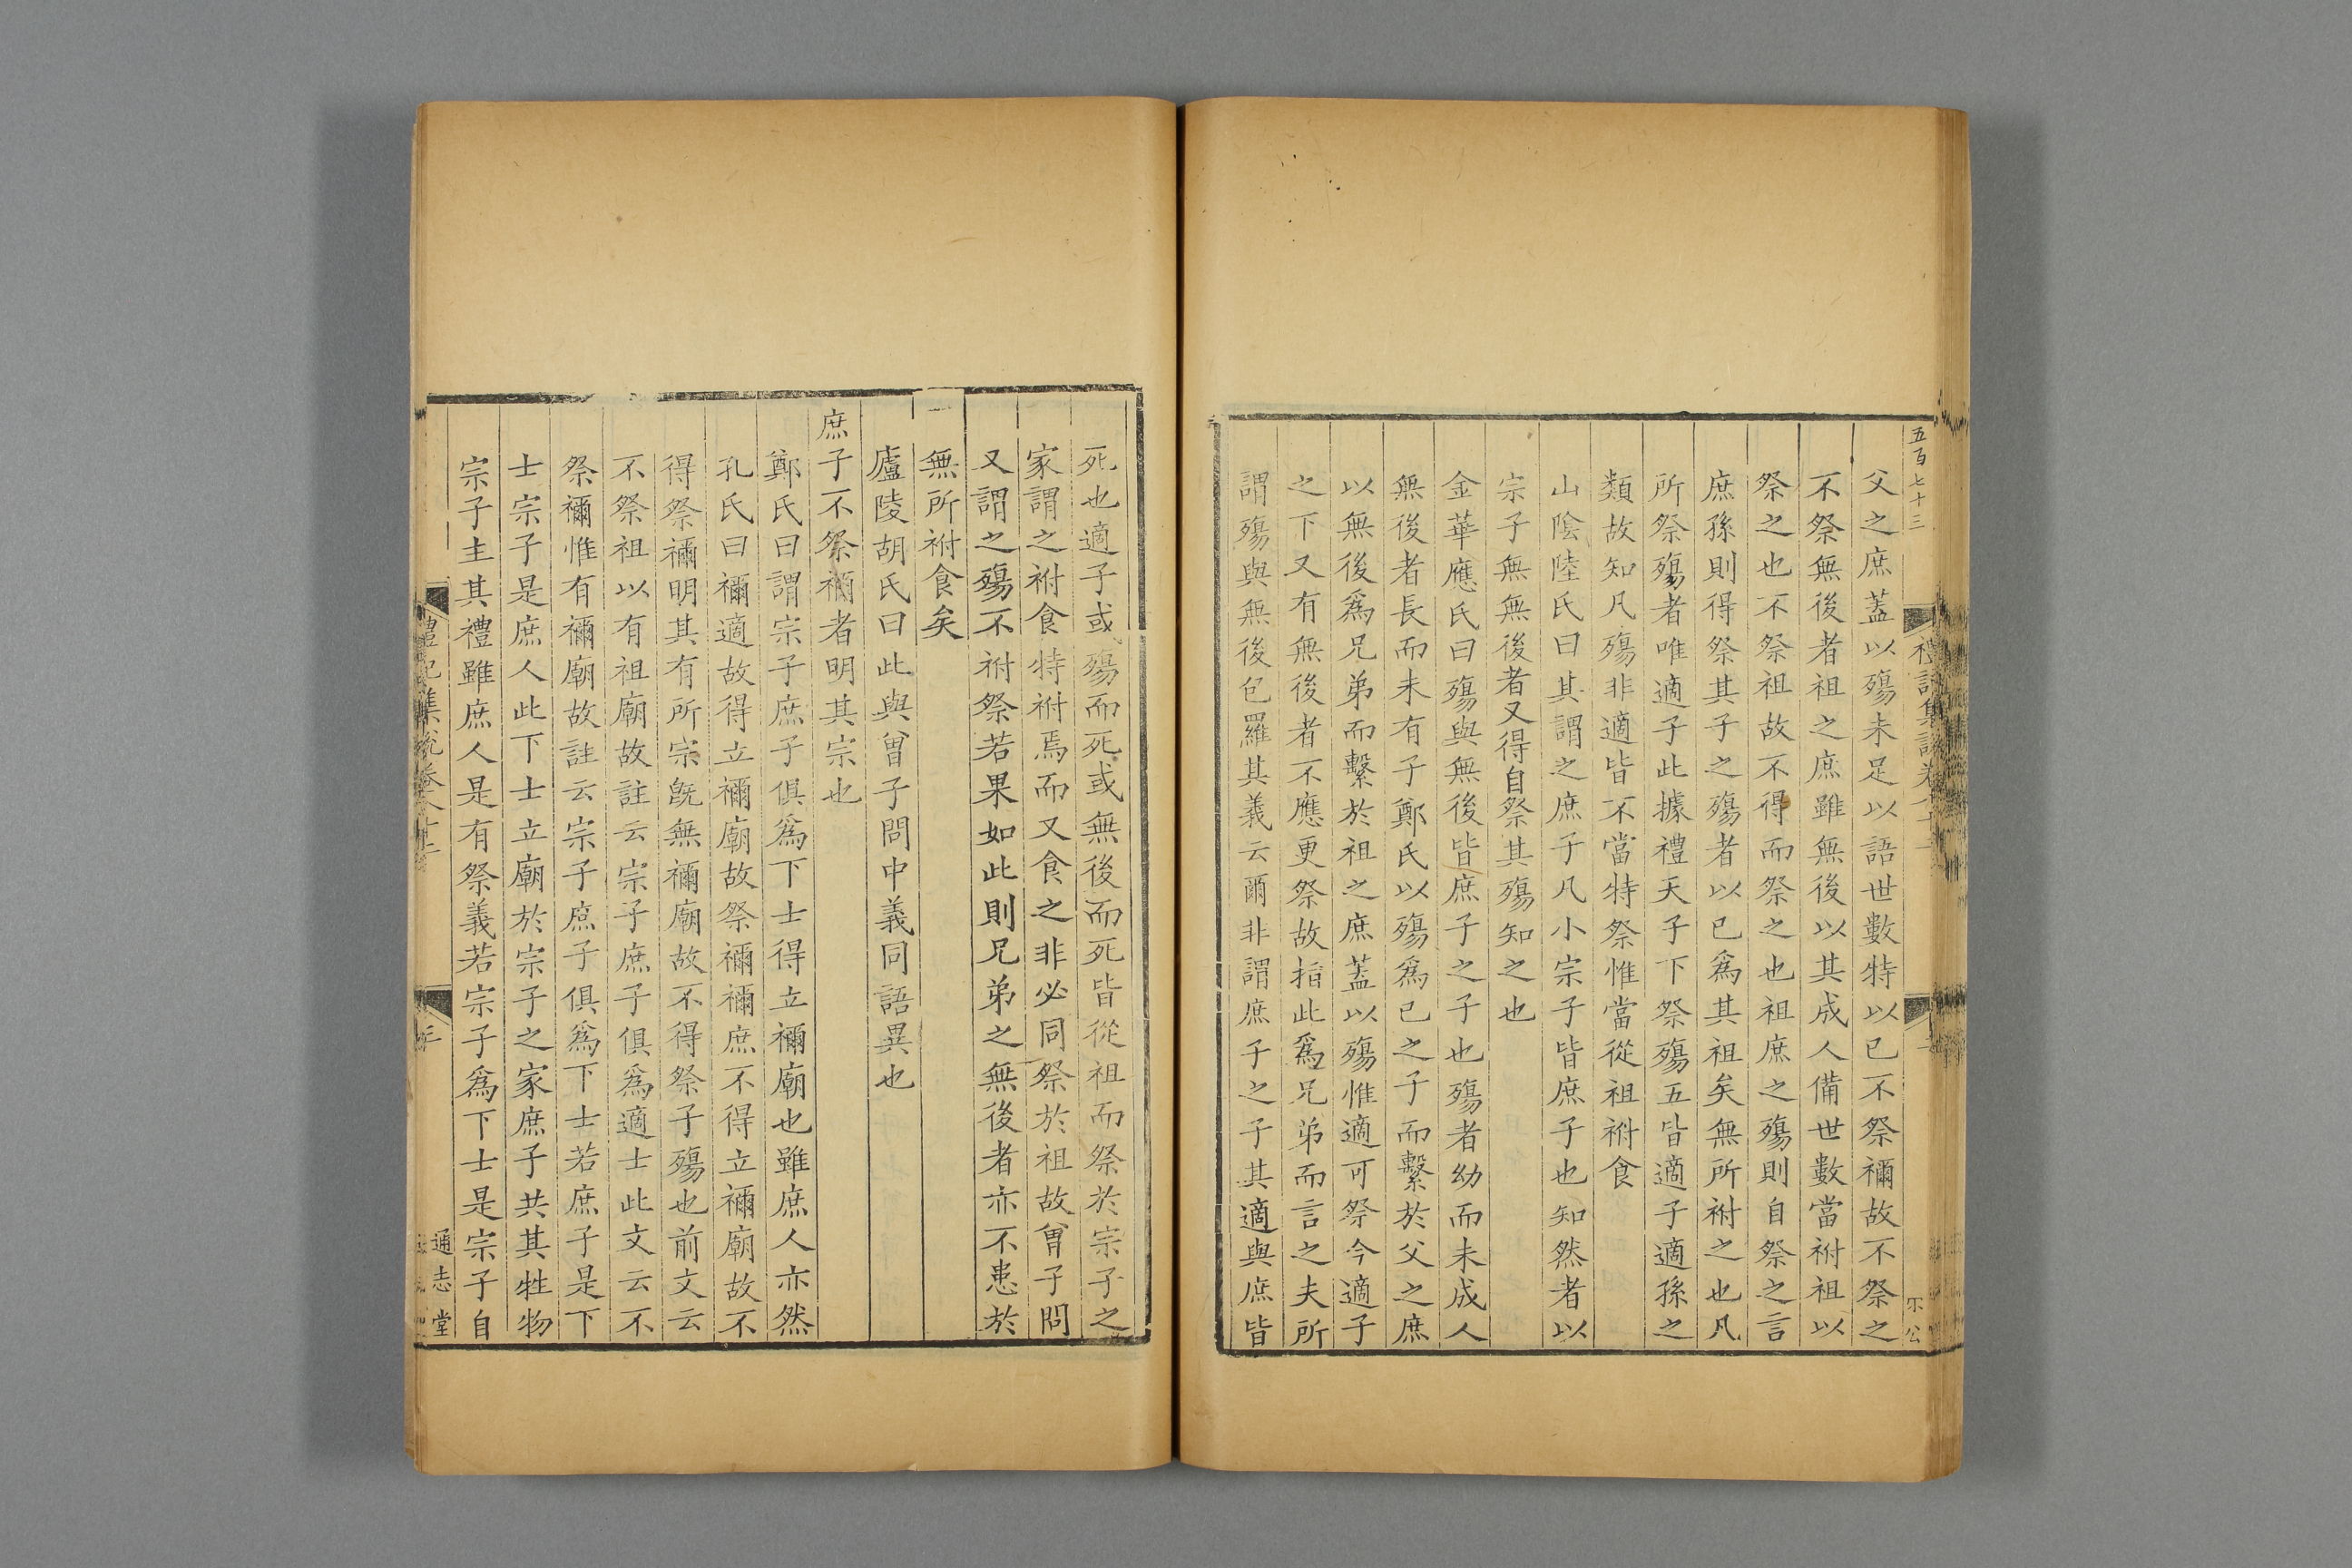 五百七十三
父之庶蓋以殤未足以語世數特以已不祭禰故不祭之
不祭無後者祖之庶雖無後以其成人備世數當祔祖以
祭之也不祭祖故不得而祭之也祖庶之殤則自祭之言
庶孫則得祭其子之殤者以已爲其祖矣無所祔之也凡
所祭殤者唯適子此據禮天子下祭殤五皆適子適孫之
類故知凡殤非適皆不當特祭惟當從祖祔食
山陰陸氏曰其謂之庶子凡小宗子皆庶子也知然者以
宗子無無後者又得自祭其殤知之也
金華應氏曰殤與無後皆庶子之子也殤者幼而未成人
無後者長而未有子鄭氏以殤爲已之子而繫於父之庶
以無後爲兄弟而繫於祖之庶蓋以殤惟適可祭今適子
之下又有無後者不應更祭故指此爲兄弟而言之夫所
謂殤與無後包羅其義云爾非謂庶子之子其適與庶皆
死也適子或殤而死或無後而死皆從祖而祭於宗子之
家謂之祔食特祔焉而又食之非必同祭於祖故曾子問
又謂之殤不祔祭若果如此則兄弟之無後者亦不患於
無所祔食矣
廬陵胡氏曰此與曾子問中義同語異也
庶子不祭禰者明其宗也
鄭氏曰謂宗子庶子俱爲下士得立禰廟也雖庶人亦然
孔氏曰禰適故得立禰廟故祭禰禰庶不得立禰廟故不
得祭禰明其有所宗旣無禰廟故不得祭子殤也前文云
不祭祖以有祖廟故註云宗子庶子俱爲適士此文云不
祭禰惟有禰廟故註云宗子庶子俱爲下士若庶子是下
士宗子是庶人此下士立廟於宗子之家庶子共其牲物
宗子主其禮雖庶人是有祭義若宗子爲下士是宗子自
通志堂